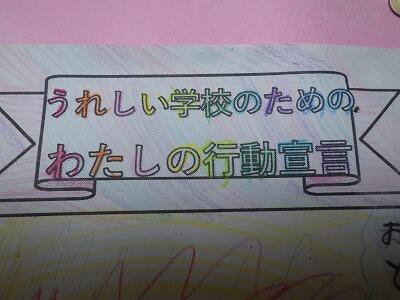 うれしい学校のための
わたしの行動宣言
お